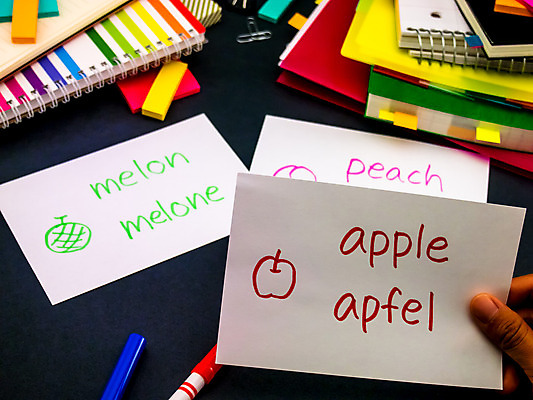 melon
melone
peach
apple
apfel